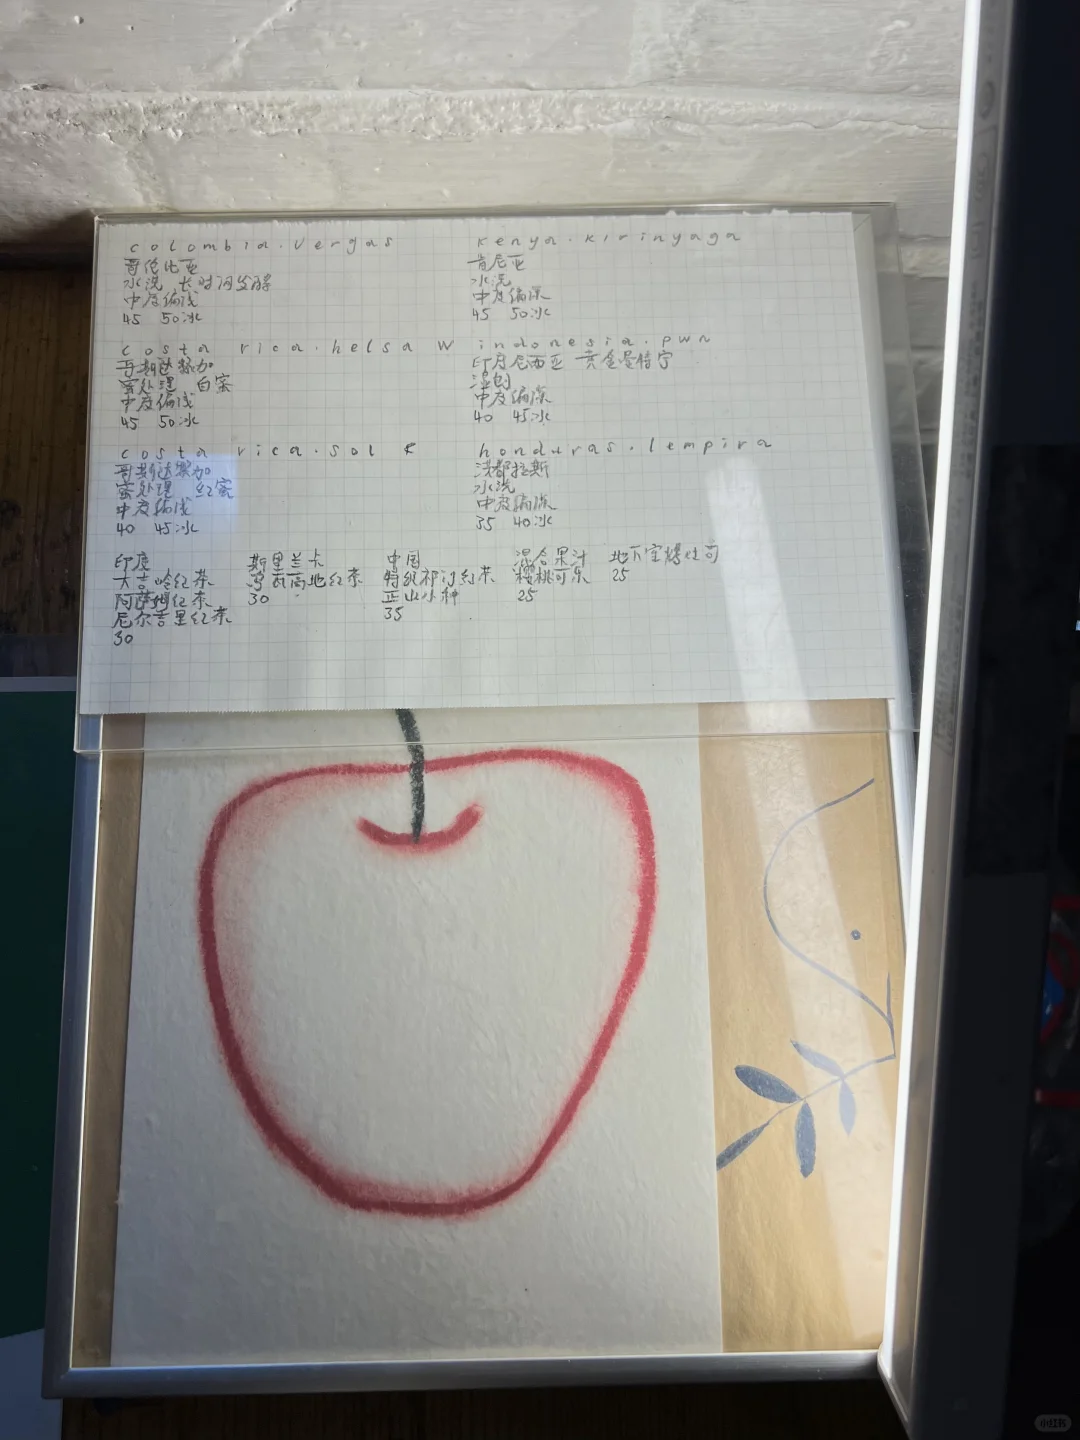 colombia.vergas
哥伦比亚
水洗 长时间发酵
中度偏浅
45 50冰
kenya.kirinyaga
肯尼亚
水洗
中度偏深
45 50冰
costa rica.helsa w
哥斯达黎加
蜜处理 白蜜
中度偏浅
45 50冰
indonesia.pwn
印度尼西亚 黄金曼特宁
湿刨
中度偏深
40 45冰
costa rica.sol
哥斯达黎加
蜜处理 红蜜
中度偏浅
40 45冰
honduras.lempira
洪都拉斯
水洗
中度偏深
35 40冰
印度
大吉岭红茶
阿萨姆红茶
尼尔吉里红茶
30
斯里兰卡
高地红茶
30
中国
特级祁门红茶
正山小种
35
混合果汁
樱桃可乐
25
地下室烤吐司
25